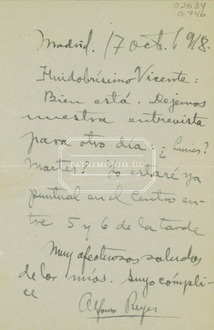 02634
0746
Madrid. 17 oct. 1918.
Fluidobrísimo Vicente:
Bien está. Dejemos
nuestra entrevista
para otro día ¿Lunes?
Martes? Yo estaré ya
puntual en el Centro en-
tre 5 y 6 de la tarde
Muy afectuosos saludos
de los míos. Suyo cómpli-
ce
Alfonso Reyes